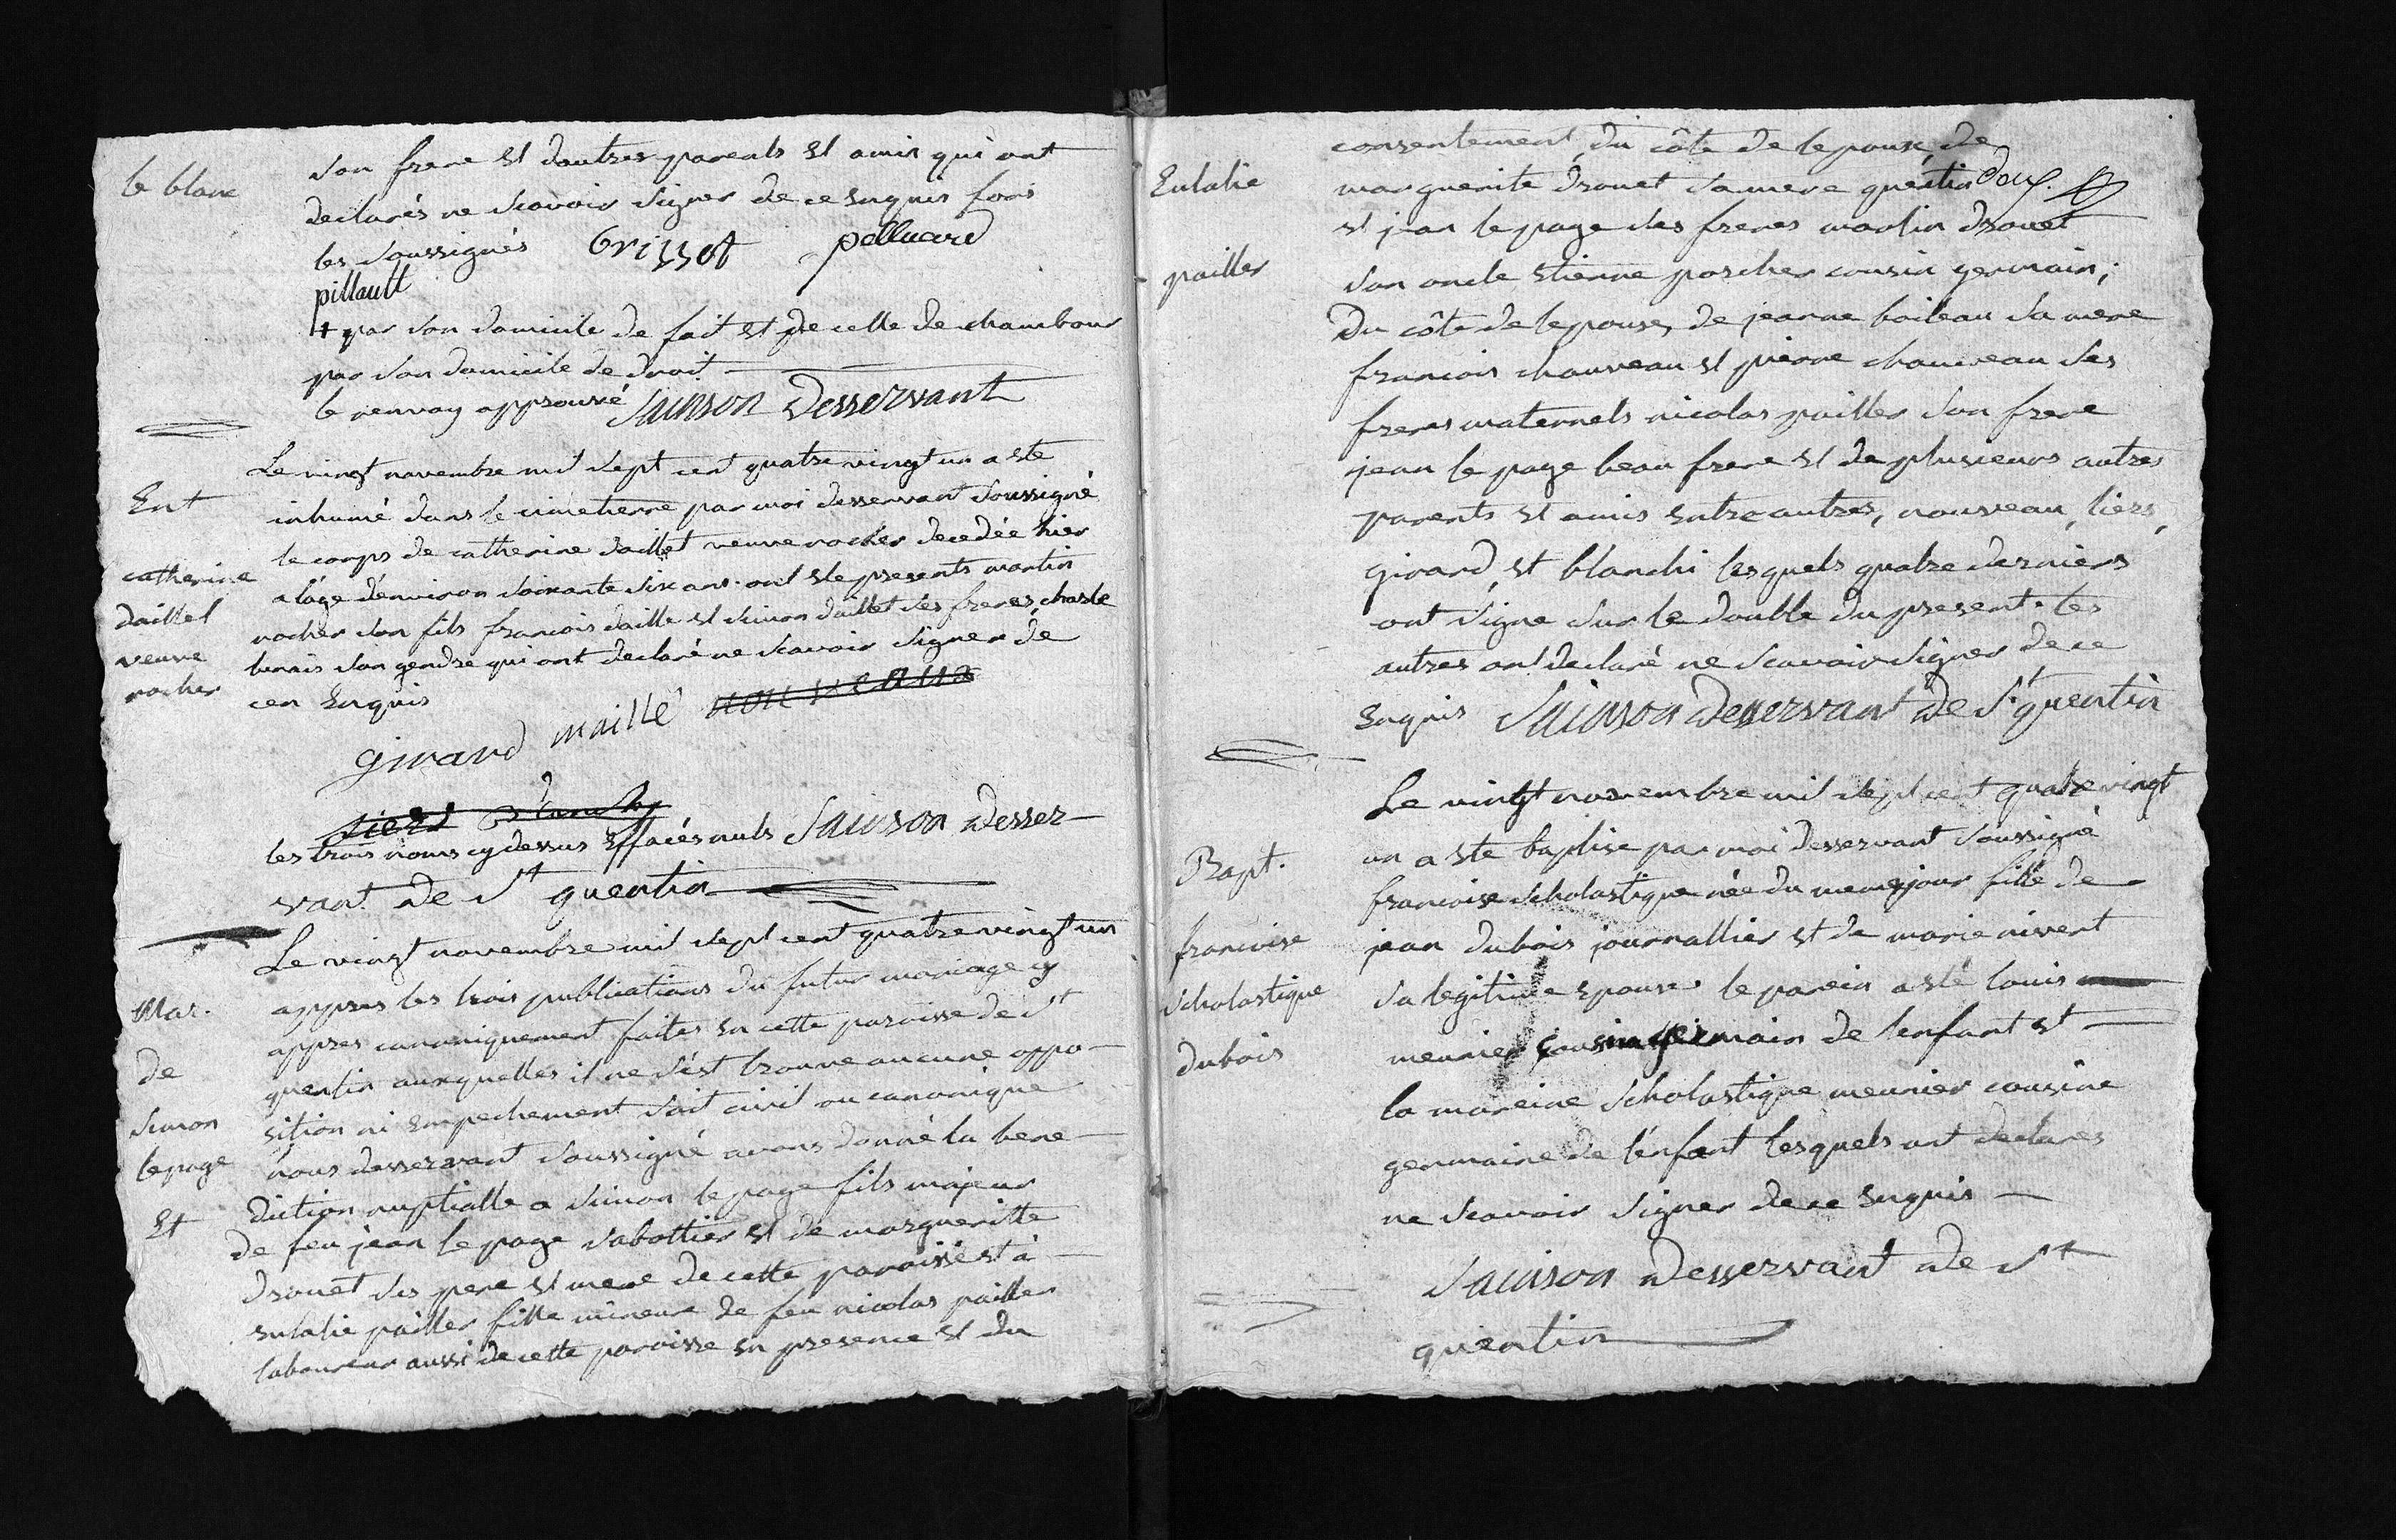 le blanc
son frere et dautres parents et amis qui ont
declarés ne scavoir signer de ce enquis fors
les soussignés Brizzot pelluard
pillault
+ par son domicile de fait et de celle de chambour
par son domicile de droit
le renvoy approuvé Sainson desservant
Ent
catherine
daillet
veuve
rocher
Le vingt novembre mil sept cent quatre vingt un a ete
inhumé dans le cimetierre par moi desservant soussigné
le corps de catherine daillet veuve rocher decedée hier
a l'age d'environ soixante six ans. ont ete presents martin
rocher son fils francois daille et simon daillet ses freres, charle
son gendre qui ont declaré ne scavoir signer de
cen enquis
girard maillé nouveaux
tiers blanchi
les trois noms cy dessus effacés nuls Sainson desser-
vant de st quentin
Mar.
de
simon
lepage
Et
Le vingt novembre mil sept cent quatre vingt un
appres les trois publications du futur mariage cy
appres canoniquement faites en cette paroisse de st
quentin auxquelles il ne s'est trouvé aucune oppo-
sition ni empechement soit civil ou canonique
nous desservant soussigné avons donné la bene-
diction nuptialle a simon le page fils majeur
de feu jean le page sabottier et de margueritte
drouet ses pere et mere de cette paroisse et à
eulalie pailler fille mineure de feu nicolas pailler
laboureur aussi de cette paroisse en presence et du
Eulalie
pailler
consentement, du côte de lepoux, de
marguerite drouet sa mere quentin
et jean le page ses freres martin drouet
son oncle etienne porcher cousin germain;
Du côte de lepouse, de jeanne boileau sa mere
francois chauveau et pierre chauveau ses
freres maternels nicolas pailler son frere
jean le page beau frere et de plusieurs autres
parents et amis entre autres, nouveau, tiers,
girard, et blanchi lesquels quatre derniers
ont signe sur le double du present. les
autres ont declaré ne scavoir signer de ce
enquis Sainson desservant de st quentin
Bapt.
francoise
scholastique
dubois
Le vingt novembre mil sept cent quatre vingt
un a ete baptise par moi desservant soussigné
francoise scholastique née du meme jour fille de
jean dubois journallier et de marie nivert
sa legitime epouse le parein a eté louis
meunier cousin germain de lenfant et
la mareine scholastique meunier cousine
germaine de l'enfant lesquels ont declares
ne scavoir signer de ce enquis
Sainson desservant de st
quentin